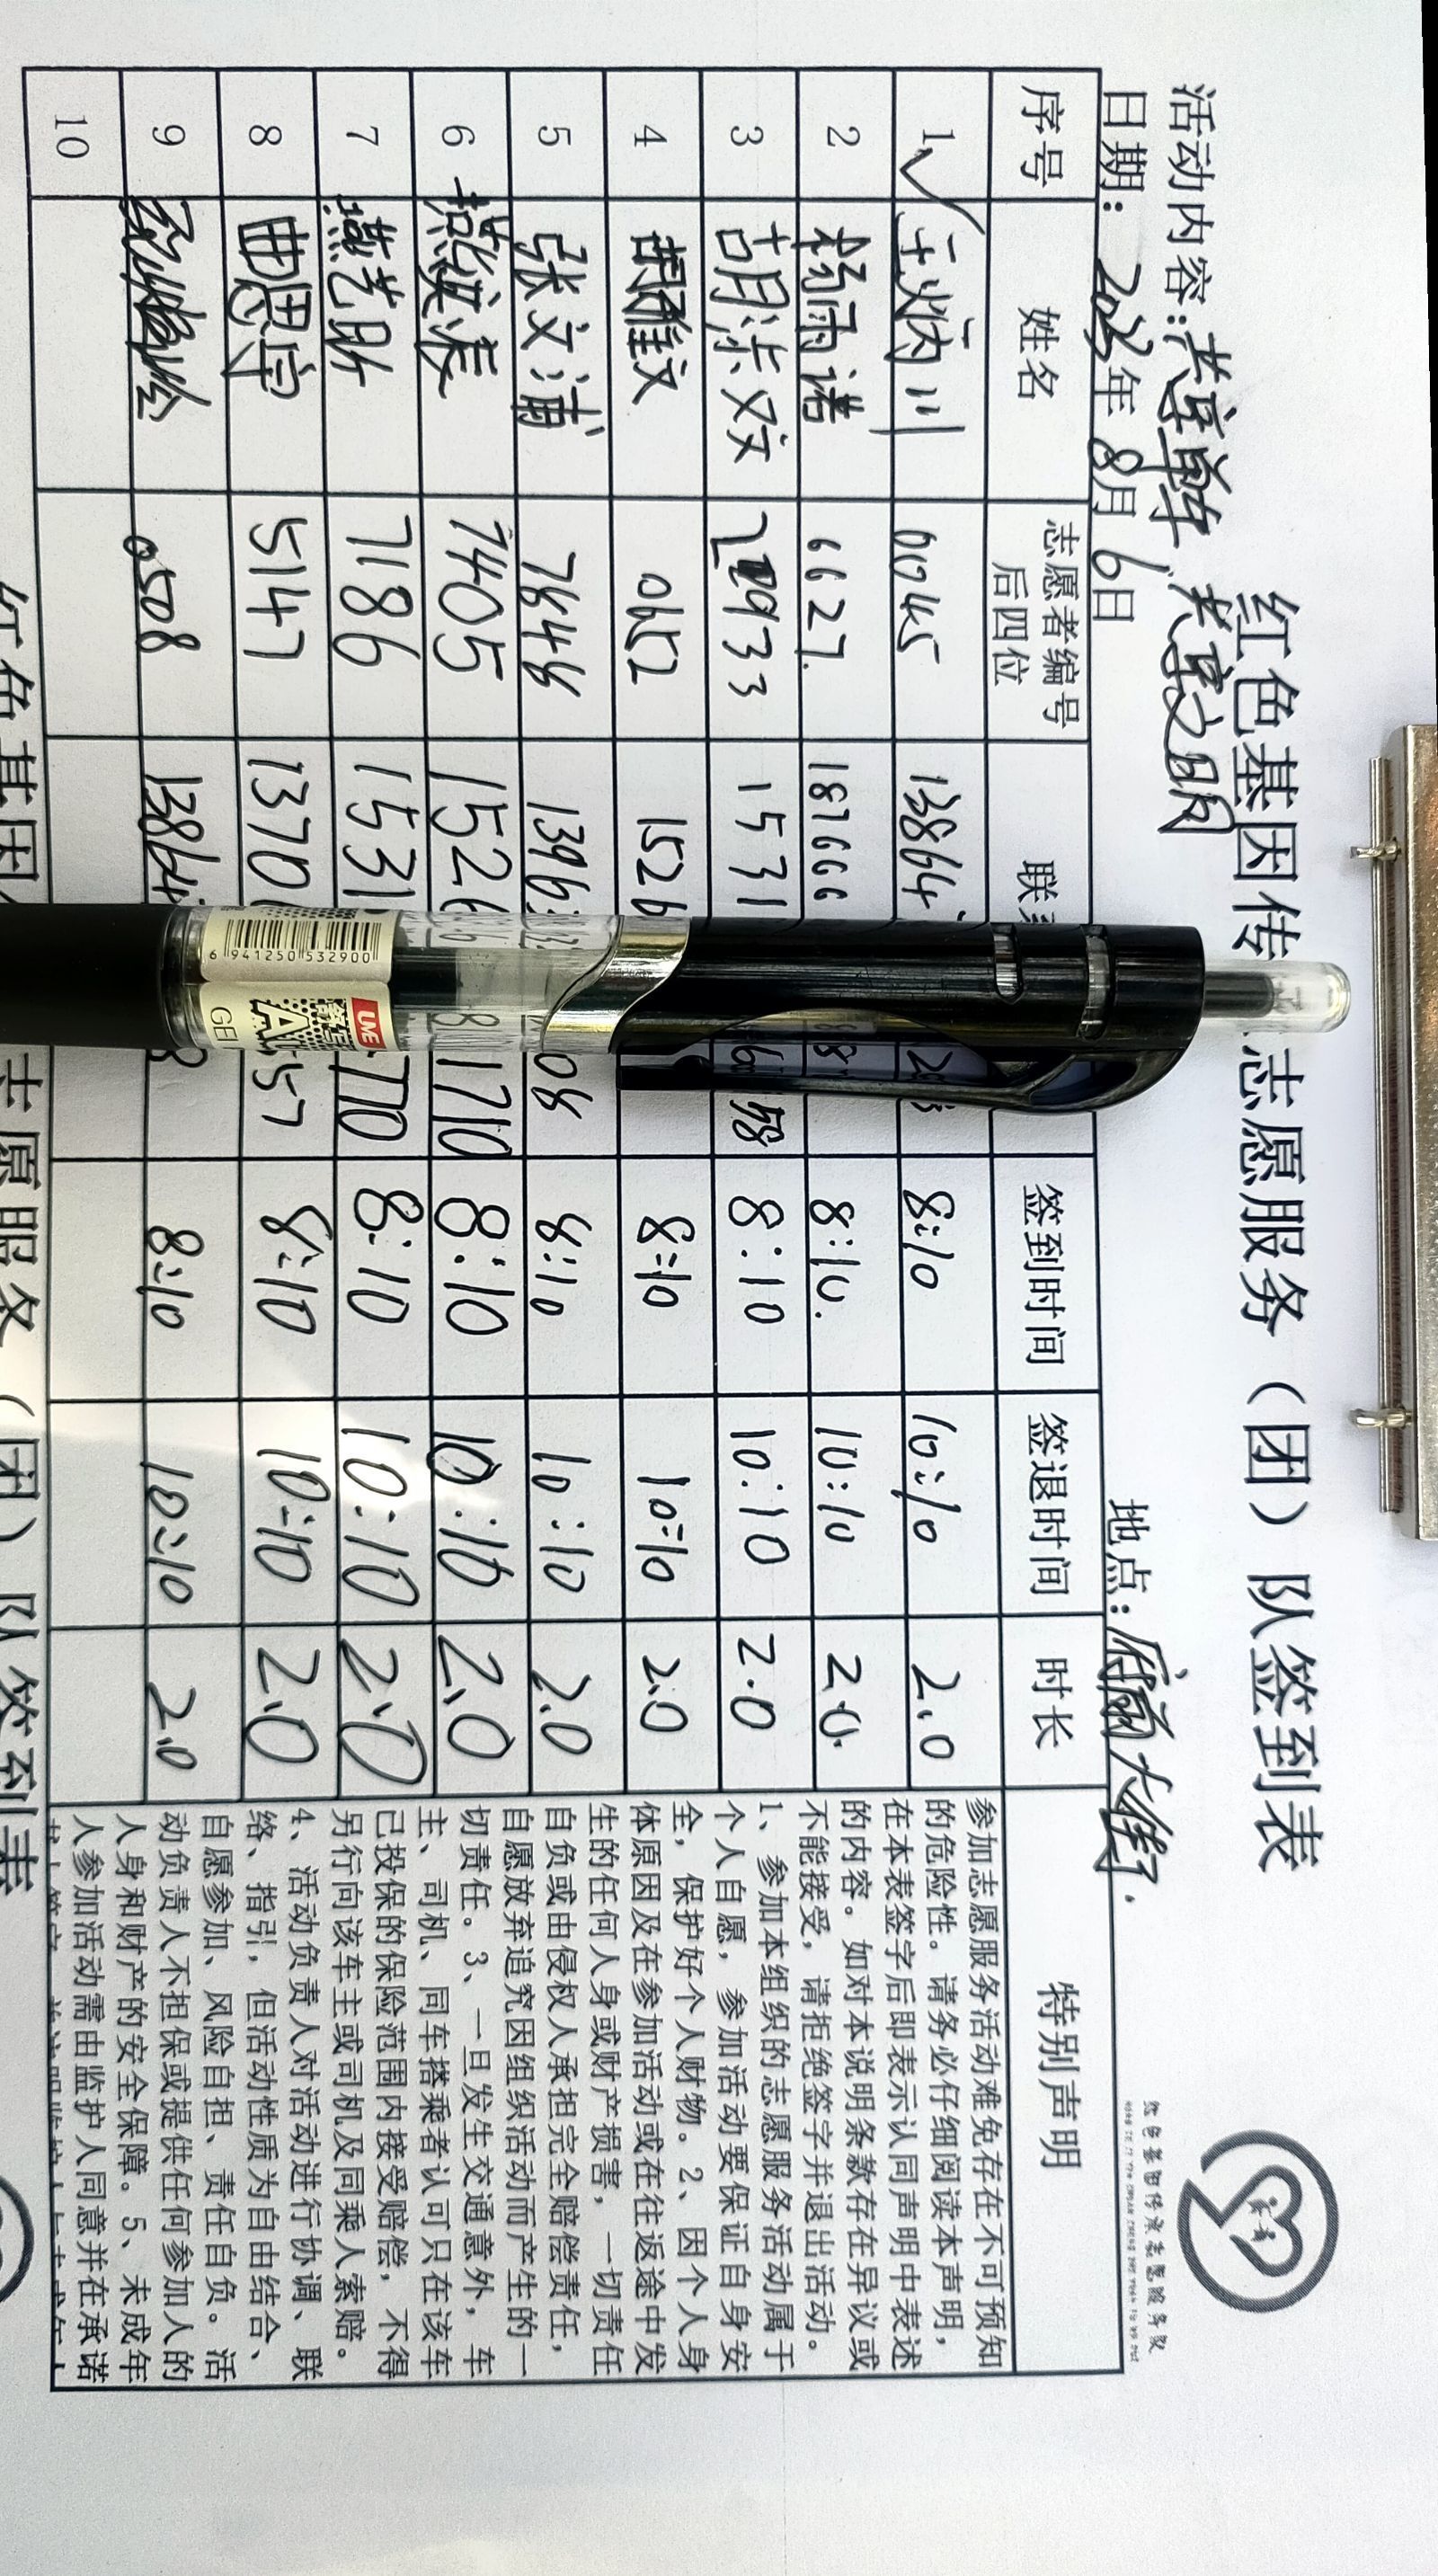 红色基因传 志愿服务（团）队签到表
活动内容：共享单车 共享文明
日期：2023年8月6日 地点：
序号 姓名 志愿者编号后四位 联 签到时间 签退时间 时长 特别声明
1 于炳川 0045 13864 8:10 10:10 2.0
2 杨雨诺 6627 187666 8:10. 10:10 2.0.
3 胡宗文 2933 1531 58 8:10 10:10 2.0
4 胡雅文 0452 1526 8:10 10:10 2.0
5 张文浦 7646 1396 06 8:10 10:10 2.0
6 7405 1526 1710 8:10 10:10 2.0
7 燕艺 7186 1531 770 8:10 10:10 2.0
8 曲思宇 5147 1370 57 8:10 10:10 2.0
9 0508 13864 8:10 10:10 2.0
10
参加志愿服务活动难免存在不可预知
的危险性。请务必仔细阅读本声明，
在本表签字后即表示认同声明中表述
的内容。如对本说明条款存在异议或
不能接受，请拒绝签字并退出活动。
1、参加本组织的志愿服务活动属于
个人自愿，参加活动要保证自身安
全，保护好个人财物。2、因个人身
体原因及在参加活动或在往返途中发
生的任何人身或财产损害，一切责任
自负或由侵权人承担完全赔偿责任，
自愿放弃追究因组织活动而产生的一
切责任。3、一旦发生交通意外，车
主、司机、同车搭乘者认可只在该车
已投保的保险范围内接受赔偿，不得
另行向该车主或司机及同乘人索赔。
4、活动负责人对活动进行协调、联
络、指引，但活动性质为自由结合、
自愿参加、风险自担、责任自负。活
动负责人不担保或提供任何参加人的
人身和财产的安全保障。5、未成年
人参加活动需由监护人同意并在承诺
红色基因传承志愿服务队
6 941250 532900
LIVE
GEL
红色基因 志愿服务（团）队签到表